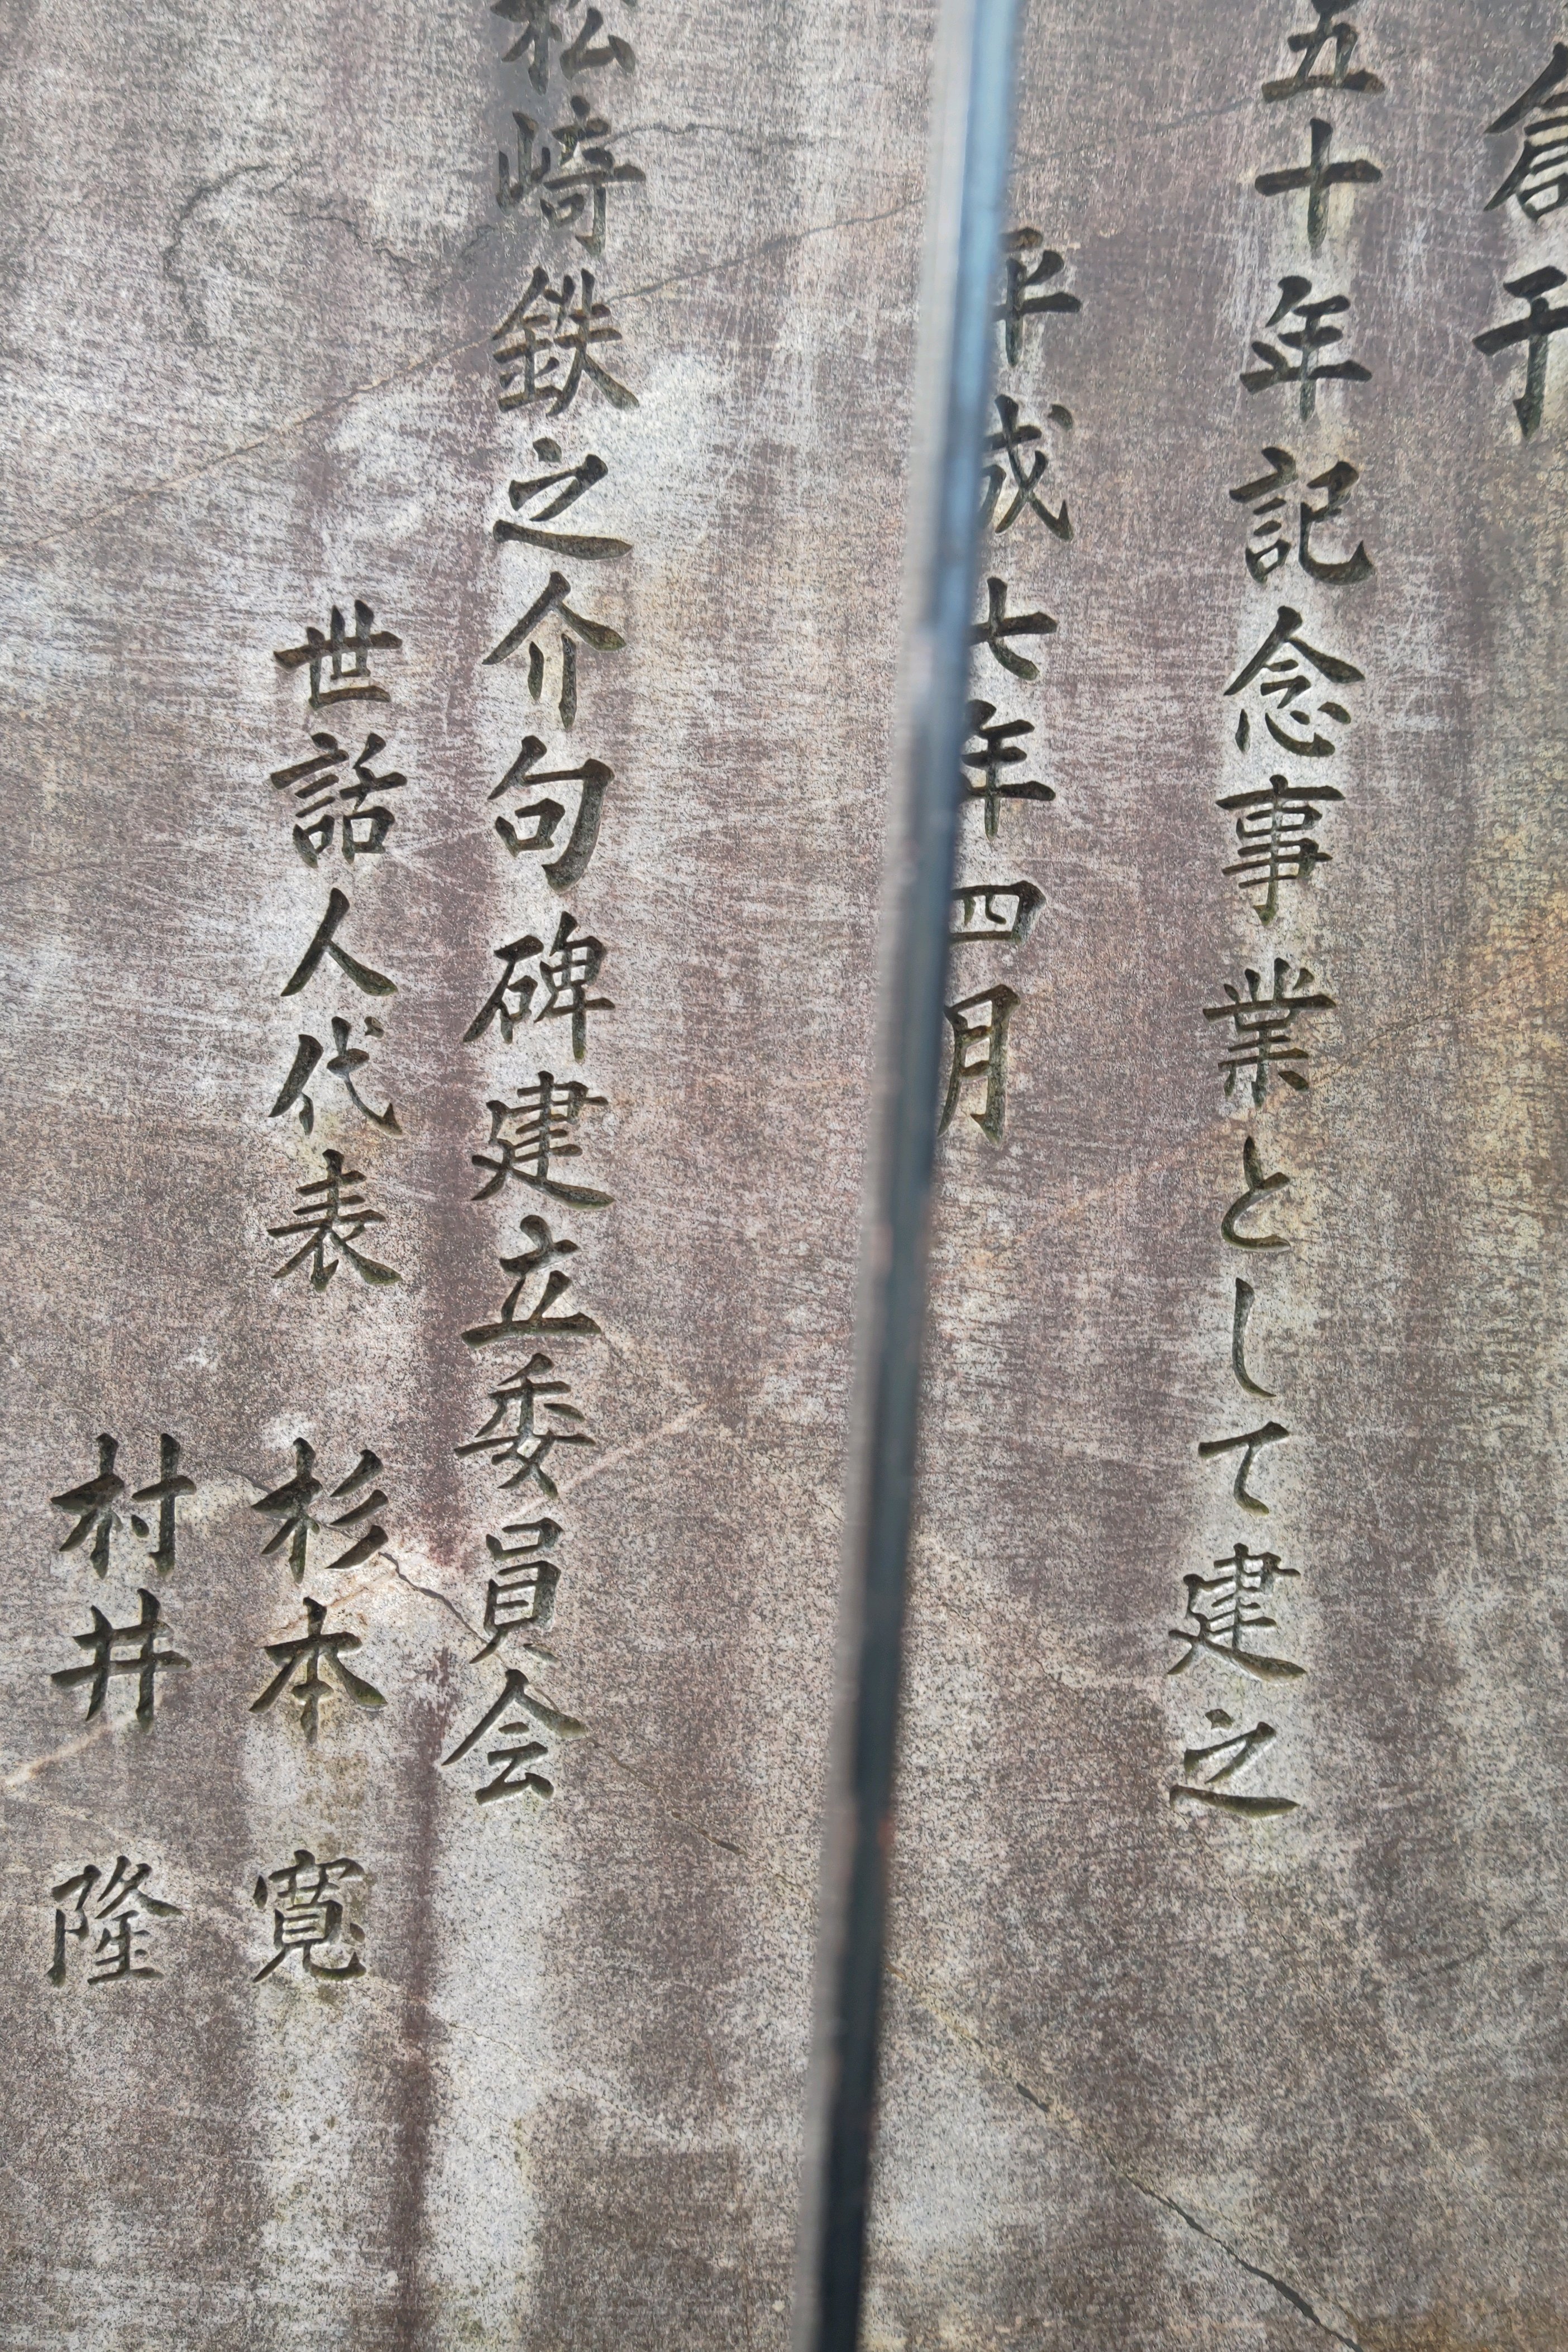 創刊
五十年記念事業として建之
平成七年四月
松崎鉄之介句碑建立委員会
世話人代表
杉本寛
村井隆